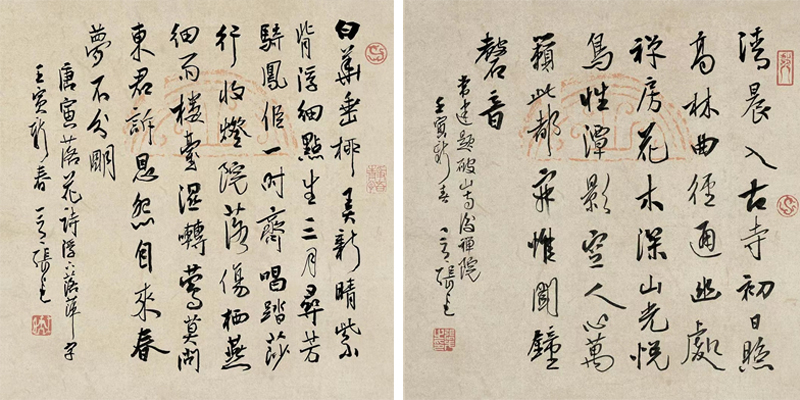 白華垂柳弄新晴紫
背浮細點生三月尋芳
騎鳳侶一時齊唱踏莎
行收燈院落傷栖燕
細雨樓臺濕囀鶯莫問
東君訴恩怨自來春
夢不分明
唐寅落花詩浮下落萍字
壬寅新春 張
清晨入古寺初日照
高林曲徑通幽處
禪房花木深山光悅
鳥性潭影空人心萬
籟此都寂惟聞鐘
磬音
常建題破山寺後禪院
壬寅新春 張